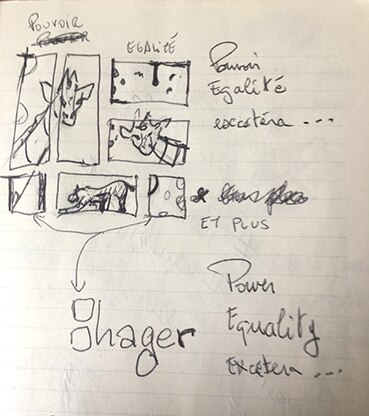 POUVOIR
EGALITÉ
Pouvoir
Egalité
excetera ...
ET PLUS
hager
Power
Equality
Excetera ...